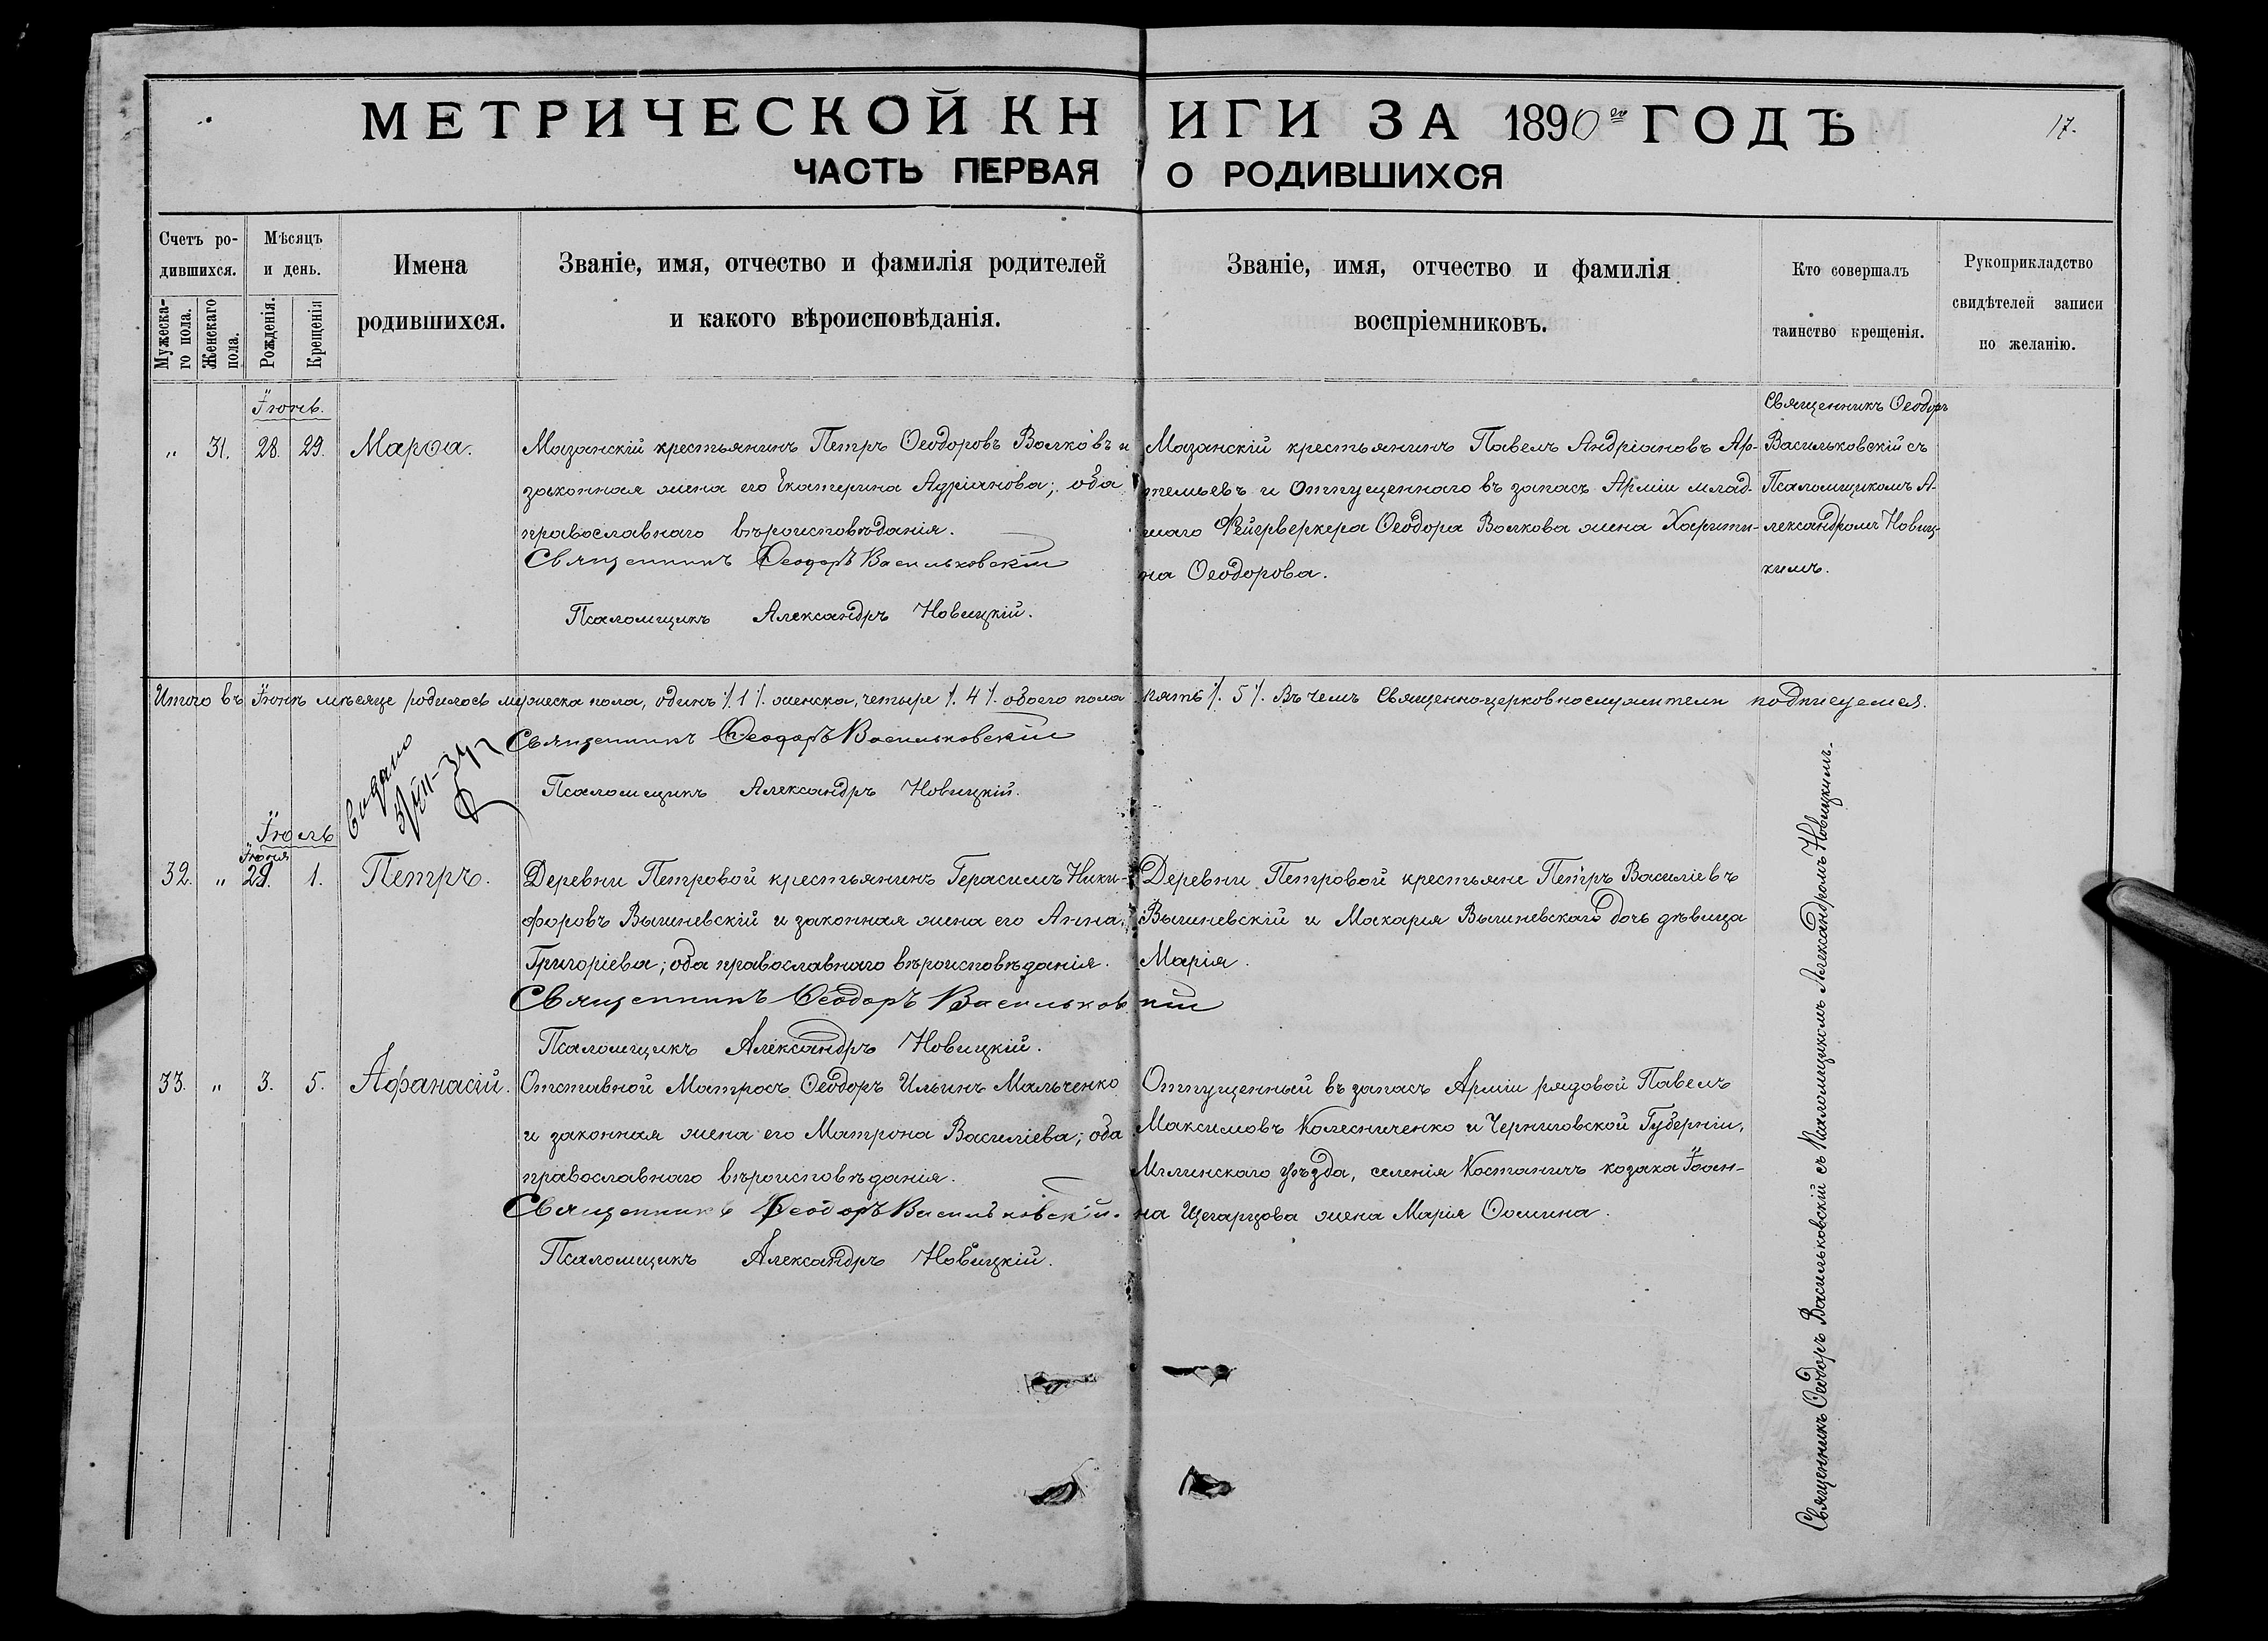 МЕТРИЧЕСКОЙ КНИГИ ЗА 1890 ГОДЪ
17.
ЧАСТЬ ПЕРВАЯ О РОДИВШИХСЯ
Счетъ ро-
дившихся.
Мужеска-
го пола.
Женскаго
пола.
Мѣсяцъ
и день.
Рожденія.
Крещенія
Имена
родившихся.
Званіе, имя, отчество и фамилія родителей
и какого вѣроисповѣданія.
Званіе, имя, отчество и фамилія
воспріемниковъ.
Кто совершалъ
таинство крещенія.
Рукоприкладство
свидѣтелей записи
по желанію.
Іюнь.
" 31. 28. 29. Марѳа.
Мазанскій крестьянинъ Петръ Ѳеодоровъ Волковъ и
законная жена его Екатерина Адріанова; оба
православнаго вѣроисповѣданія.
Священникъ Ѳеодоръ Васильковскій
Псаломщикъ Александръ Новицкій.
Мазанскій крестьянинъ Павелъ Андріановъ Ар-
темьевъ и Отпущеннаго въ запасъ Арміи млад-
шаго Фейерверкера Ѳеодора Волкова жена Харити-
на Ѳеодорова.
Священникъ Ѳеодоръ
Васильковскій съ
Псаломщикомъ А-
лександромъ Новиц-
кимъ.
Итого въ Іюнѣ мѣсяце родилось мужеска пола, одинъ ٪ 1 ٪. женска, четыре ٪. 4 ٪. обоего пола пять ٪. 5 ٪. Въ чемъ Священноцерковнослужители подписуемся.
Священникъ Ѳеодоръ Васильковскій
Псаломщикъ Александръ Новицкій.
Видано
Іюль
Іюня
32. " 29. 1. Петръ.
Деревни Петровой крестьянинъ Герасимъ Ники-
форовъ Вышневскій и законная жена его Анна
Григоріева; оба православнаго вѣроисповѣданія.
Священникъ Ѳеодоръ Васильковскій
Псаломщикъ Александръ Новицкій.
Деревни Петровой крестьяне Петръ Василіевъ
Вышневскій и Макарія Вышневскаго дочь дѣвица
Марія.
33. " 3. 5. Афанасій.
Отставной Матросъ Ѳеодоръ Ильинъ Мальченко
и законная жена его Матрона Василіева; оба
православнаго вѣроисповѣданія.
Священникъ Ѳеодоръ Васильковскій.
Псаломщикъ Александръ Новицкій.
Отпущенный въ запасъ Арміи рядовой Павелъ
Максимовъ Колесниченко и Черниговской Губерніи,
Мглинскаго уѣзда, селенія Костаничъ козака Іоан-
на Щегарцова жена Марія Ѳомина.
Священникъ Ѳеодоръ Васильковскій съ Псаломщикомъ Александромъ Новицкимъ.